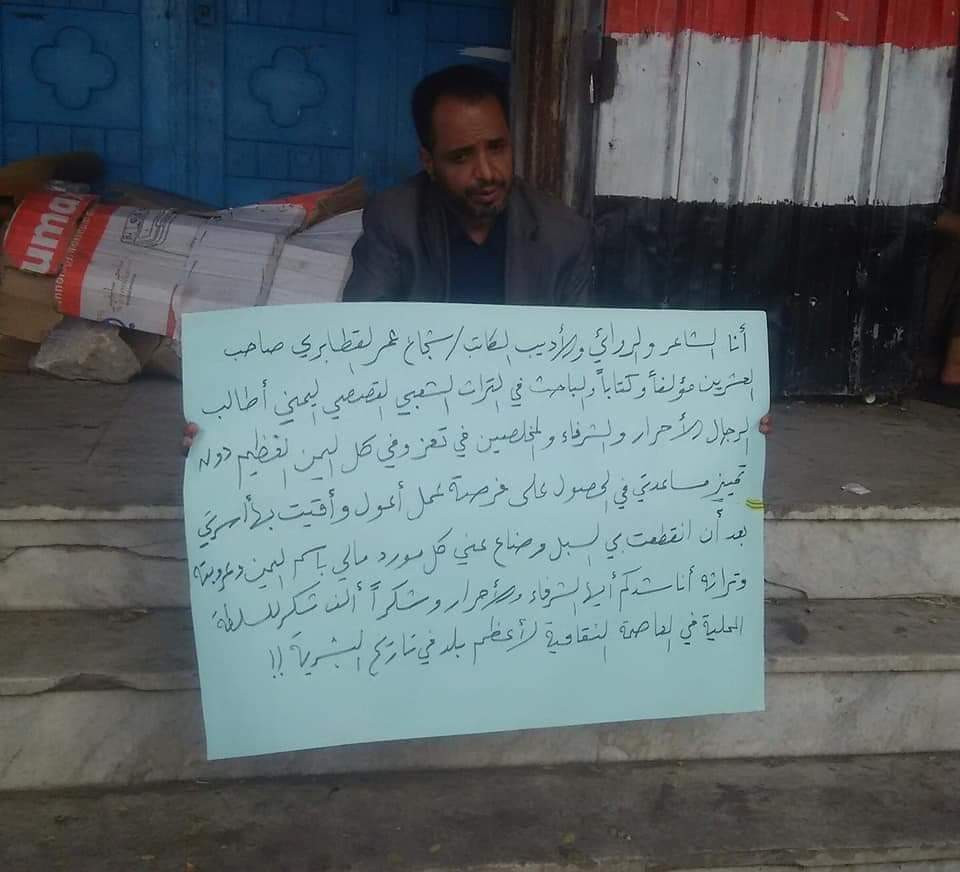 uma
أنا الشاعر والروائي والأديب الكاتب/ شجاع عمر القطابري صاحب
العشرين مؤلفاً وكتاباً والباحث في التراث الشعبي القصصي اليمني أطالب
الرجال الأحرار والشرفاء والمخلصين في تعز وفي كل اليمن العظيم دون
تمييز مساعدتي في الحصول على فرصة عمل أعول وأقيت بها أسرتي
بعد أن انقطعت بي السبل وضاع عني كل مورد مالي باسم اليمن وعروبته
وتراثه أناشدكم أيها الشرفاء والأحرار وشكراً ألف شكر للسلطة
المحلية في العاصمة الثقافية لأعظم بلد في تاريخ البشرية !!